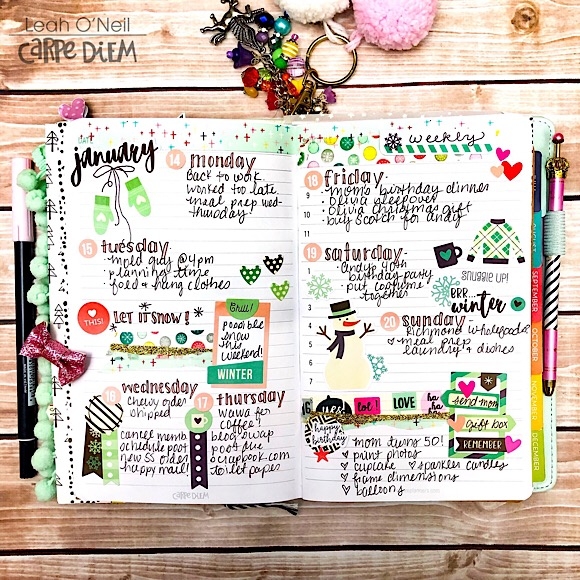 Leah O'Neil
CARPE DIEM
january
14 monday
Back to work
worked too late
meal prep wed-
thursday!
15 tuesday
mold guy @ 4pm
planning time
fold & hang clothes
THIS!
LET IT SNOW!
Chill!
possible
snow
this
weekend!
WINTER
16 wednesday
chewy order
shipped
cancel memb
schedule post
new SS order
happy mail!
17 thursday
wawa for
coffee!
blog swap
post due
scrapbook.com
toilet paper
CARPE DIEM
weekly
18 friday
mom's birthday dinner
Olivia sleepover
Olivia christmas gift
buy scotch for andy
19 saturday
andy's 40th
birthday party
put costume
together
SNUGGLE UP!
BRR...
winter
20 sunday
Richmond wholefoods
meal prep
laundry & dishes
lol!
LOVE
ha
ha
happy
birthday
send mom
gift box
REMEMBER
mom turns 50!
print photos
cupcake sparkles candles
frame dimensions
balloons
AUGUST
SEPTEMBER
OCTOBER
NOVEMBER
DECEMBER